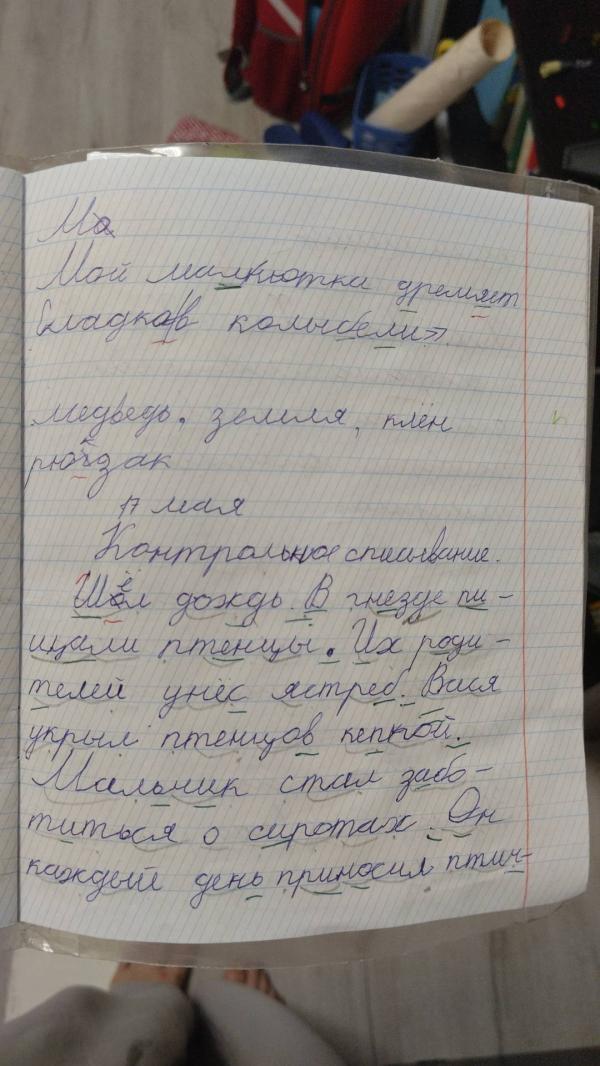 Ма
Мой малютка дремлет
сладко в колыбели»
медведь. земля, клён
рюкзак
17 мая
Контрольное списывание.
Шёл дождь. В гнезде пи-
щали птенцы. Их роди-
телей унёс ястреб. Вася
укрыл птенцов кепкой.
Мальчик стал забо-
титься о сиротах. Он
каждый день приносил птич-